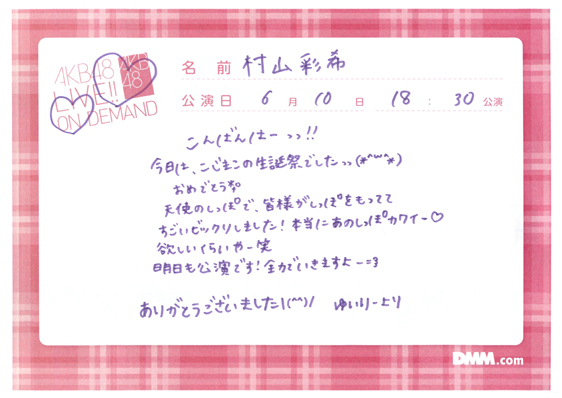 AKB48
LIVE!!
ON DEMAND
AKB
48
名前 村山彩希
公演日 6月10日 18:30公演
こんばんはーっっ!!
今日は、こじまこの生誕祭でしたっっ(*^w^*)
おめでとう
天使のしっぽで、皆様がしっぽをもってて
ちごいビックリしました!本当にあのしっぽカワイー♡
欲しいくらいやー笑
明日も公演です!全力でいきますよー=3
ありがとうございました!(^^)/ ゆいりーより
DMM.com